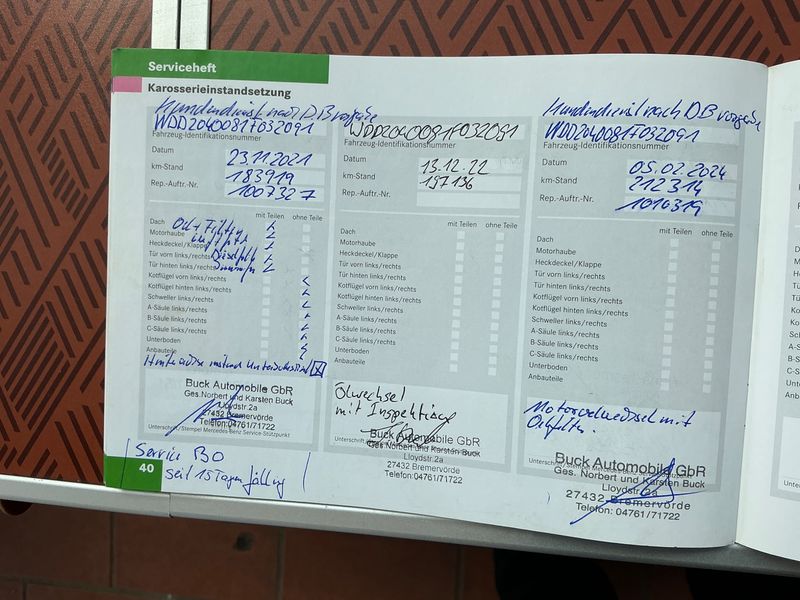 Serviceheft
Karosserieinstandsetzung
Kundendienst nach DB vorgabe
WDD2040081F032091
Fahrzeug-Identifikationsnummer
Datum 23.11.2021
km-Stand 183919
Rep.-Auftr.-Nr. 1007327
mit Teilen ohne Teile
Dach
Motorhaube
Heckdeckel/Klappe
Tür vorn links/rechts
Tür hinten links/rechts
Kotflügel vorn links/rechts
Kotflügel hinten links/rechts
Schweller links/rechts
A-Säule links/rechts
B-Säule links/rechts
C-Säule links/rechts
Unterboden
Anbauteile
Buck Automobile GbR
Ges. Norbert und Karsten Buck
Lloydstr.2a
27432 Bremervörde
Telefon:04761/71722
Unterschrift/Stempel Mercedes-Benz Service-Stützpunkt
Service B0
seit 15 Tagen fällig
40
WDD2040081F032091
Fahrzeug-Identifikationsnummer
Datum 13.12.22
km-Stand 197136
Rep.-Auftr.-Nr.
mit Teilen ohne Teile
Dach
Motorhaube
Heckdeckel/Klappe
Tür vorn links/rechts
Tür hinten links/rechts
Kotflügel vorn links/rechts
Kotflügel hinten links/rechts
Schweller links/rechts
A-Säule links/rechts
B-Säule links/rechts
C-Säule links/rechts
Unterboden
Anbauteile
Ölwechsel
mit Inspektion
Buck Automobile GbR
Ges. Norbert und Karsten Buck
Lloydstr.2a
27432 Bremervörde
Telefon:04761/71722
Kundendienst nach DB vorgabe
WDD2040081F032091
Fahrzeug-Identifikationsnummer
Datum 05.02.2024
km-Stand 212314
Rep.-Auftr.-Nr. 1010319
mit Teilen ohne Teile
Dach
Motorhaube
Heckdeckel/Klappe
Tür vorn links/rechts
Tür hinten links/rechts
Kotflügel vorn links/rechts
Kotflügel hinten links/rechts
Schweller links/rechts
A-Säule links/rechts
B-Säule links/rechts
C-Säule links/rechts
Unterboden
Anbauteile
Motoroelwechsel mit
Oelfilter.
Buck Automobile GbR
Ges. Norbert und Karsten Buck
Lloydstr.2a
27432 Bremervörde
Telefon: 04761/71722